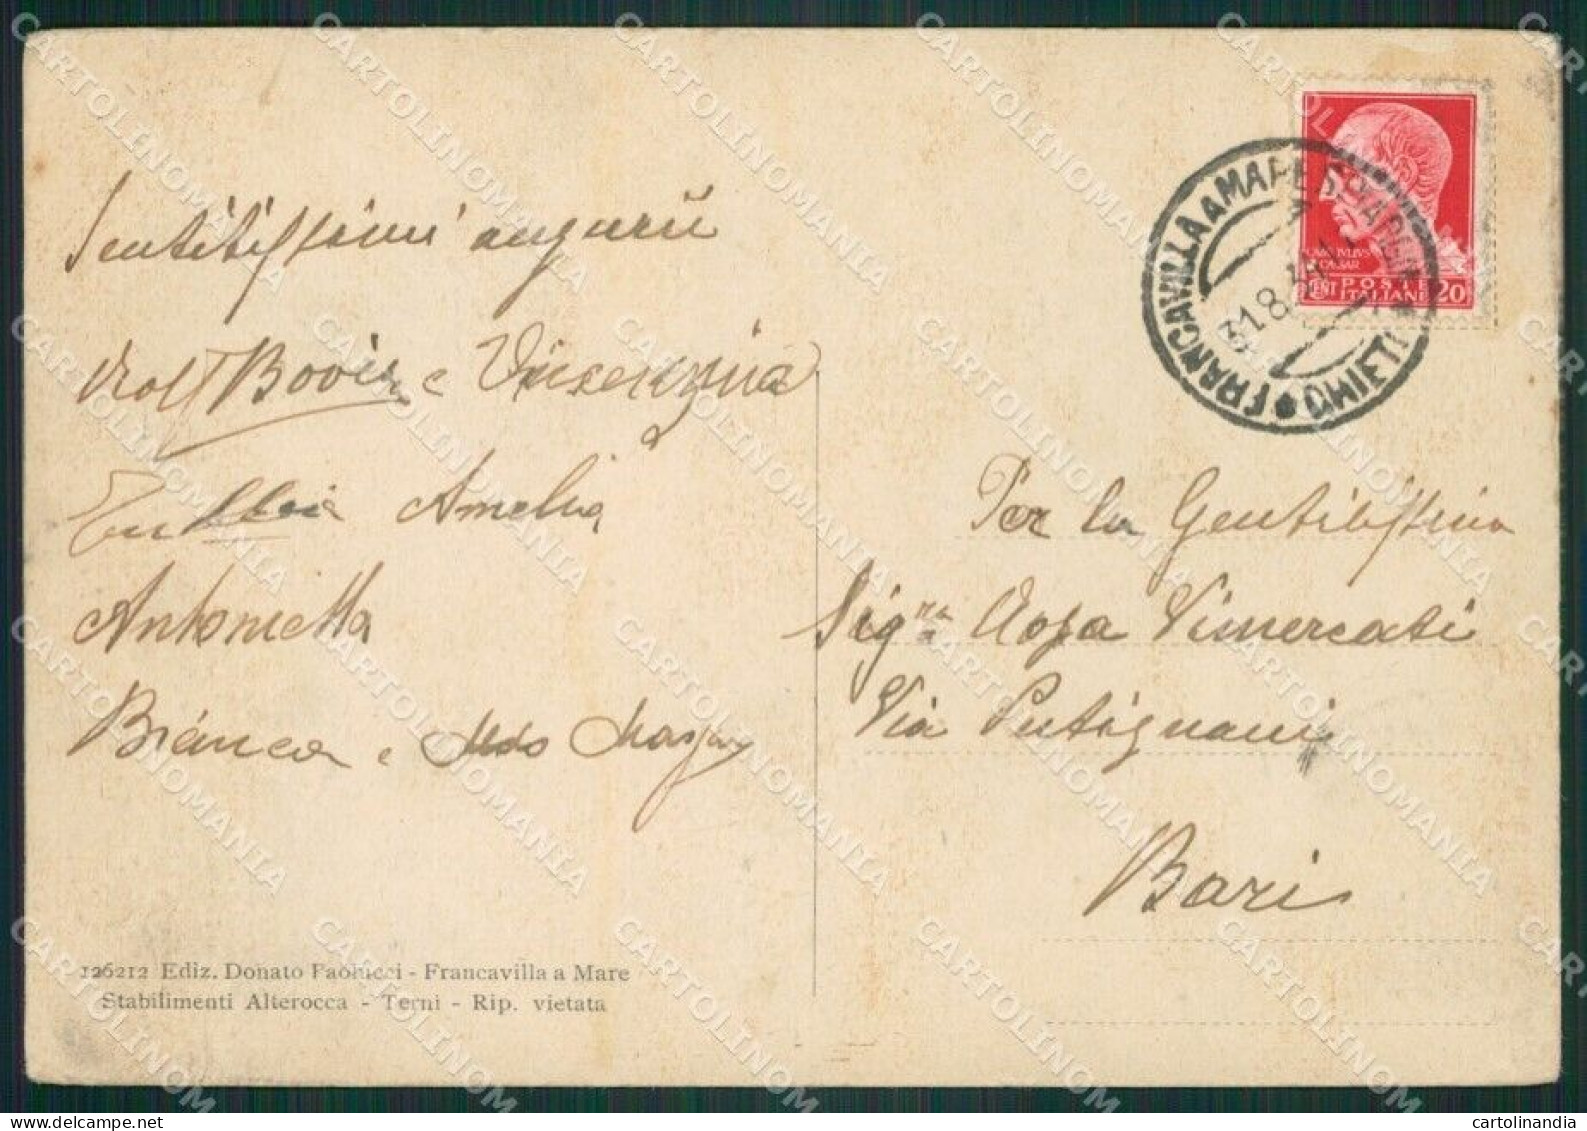 Sentitissimi auguri
Bovio e Vincenzina
Amelia
Antonietta
Bianca e Aldo
126212 Ediz. Donato Paolucci - Francavilla a Mare
Stabilimenti Alterocca - Terni - Rip. vietata
FRANCAVILLA A MARE
31.8
CAIVS IVLIVS
CAESAR
CENT POSTE 20
ITALIANE
Per la Gentilissima
Sig.na Rosa Vimercati
Via Putignani
Bari
CARTOLINOMANIA
cartolinandia